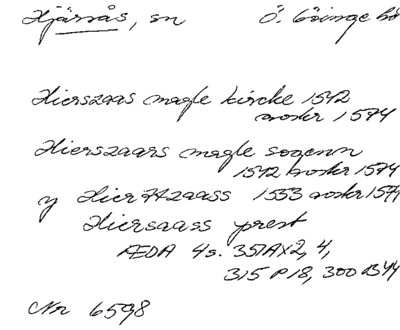 Hjärsås, sn Ö. Göinge hd
Hierszaas magle kircke 1542
avskr 1574
Hierszaars magle sogenn
1542 avskr 1574
y Hierszaass 1553 avskr 1574
Hiersaass prest
ÆDA 4 s. 351 AX2, 4,
315 P 18, 300 B 44
Nr 6598